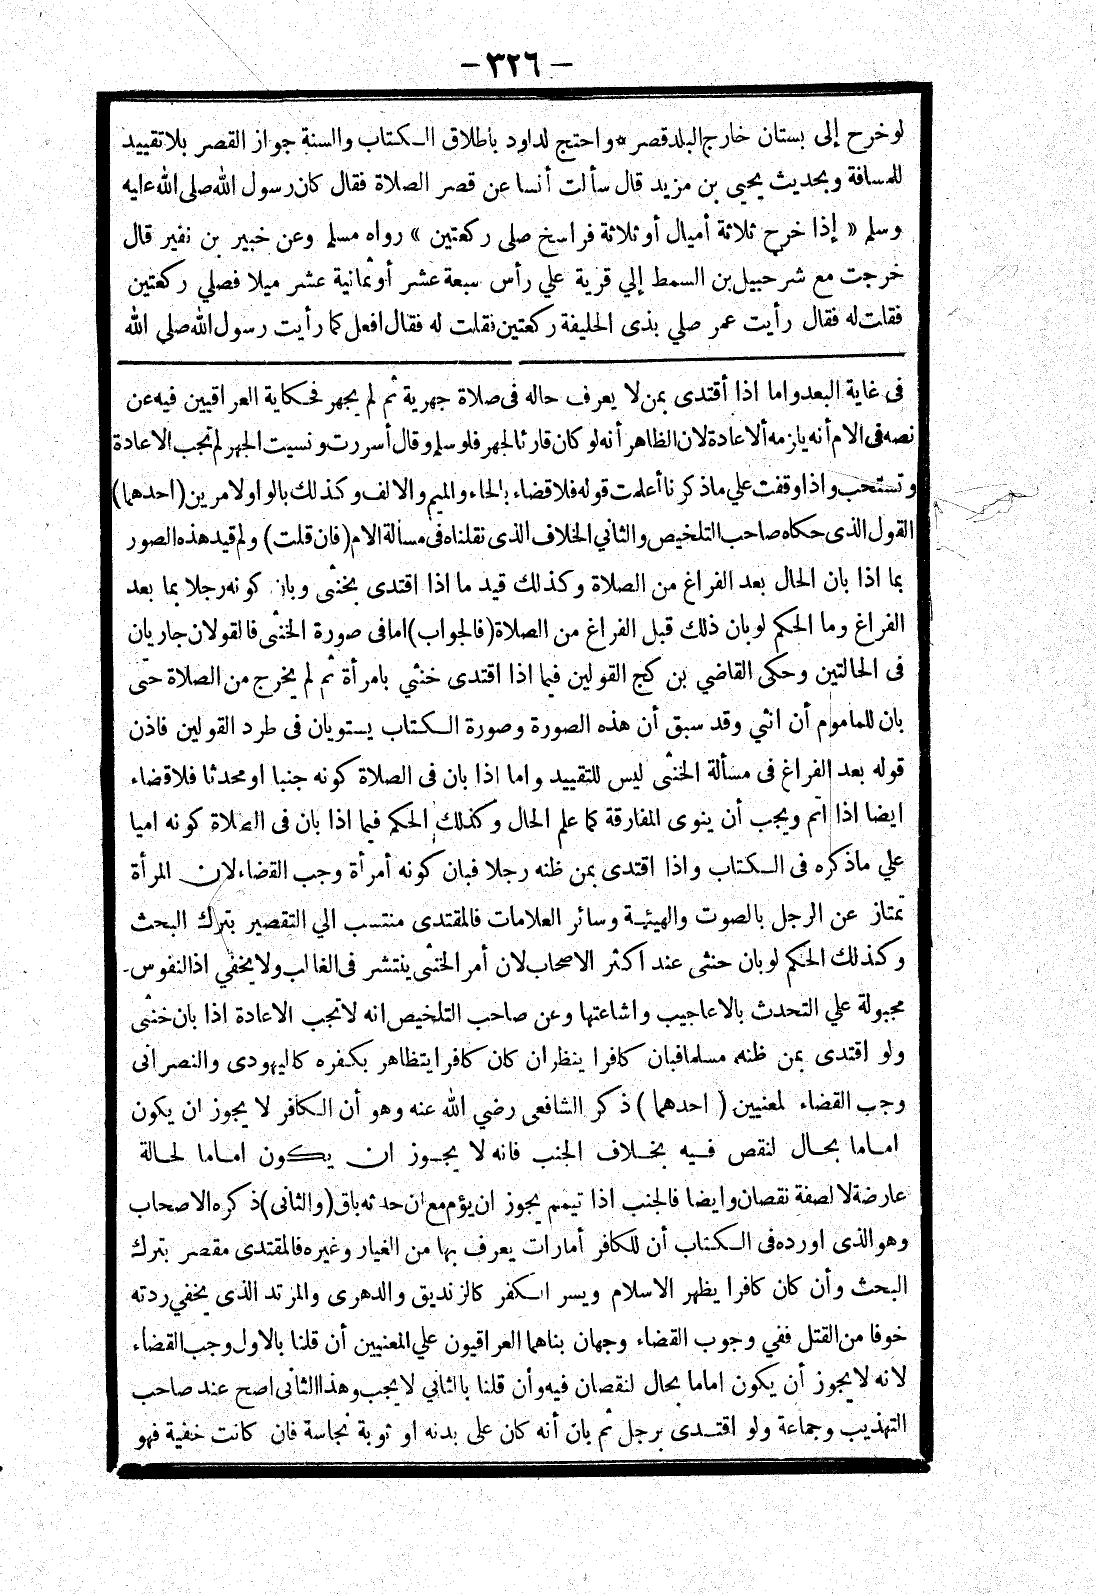 — ٣٢٦ —
لو خرج إلى بستان خارج البلد قصر * واحتج لداود باطلاق الكتاب والسنة جواز القصر بلا تقييد
للمسافة وبحديث يحيى بن مزيد قال سألت أنسا عن قصر الصلاة فقال كان رسول الله صلى الله عليه
وسلم « إذا خرج ثلاثة أميال أو ثلاثة فراسخ صلى ركعتين » رواه مسلم وعن خبير بن نفير قال
خرجت مع شرحبيل بن السمط إلي قرية علي رأس سبعة عشر أو ثمانية عشر ميلا فصلي ركعتين
فقلت له فقال رأيت عمر صلي بذى الحليفة ركعتين نقلت له فقال افعل كما رأيت رسول الله صلي الله
فى غاية البعد واما اذا أقتدى بمن لا يعرف حاله فى صلاة جهرية ثم لم يجهر فحكاية العراقيين فيه عن
نصه فى الام أنه يلزمه ألاعادة لان الظاهر أنه لو كان قارئا لجهر فلو سلم وقال أسررت ونسيت الجهر لم تجب الاعادة
وتستحب واذا وقفت علي ما ذكرنا أعلمت قوله فلا قضاء بالحاء والميم والالف وكذلك بالواو لامرين (احدهما)
القول الذى حكاه صاحب التلخيص والثاني الخلاف الذى نقلناه فى مسألة الام (فان قلت) ولم قيد هذه الصور
بما اذا بان الحال بعد الفراغ من الصلاة وكذلك قيد ما اذا اقتدى بخنثى وبان كونه رجلا بما بعد
الفراغ وما الحكم لو بان ذلك قبل الفراغ من الصلاة (فالجواب) اما فى صورة الخنثى فالقولان جاريان
فى الحالتين وحكى القاضي بن كج القولين فيما اذا اقتدى خنثي بامرأة ثم لم يخرج من الصلاة حتى
بان للماموم أن انثي وقد سبق أن هذه الصورة وصورة الكتاب يستويان فى طرد القولين فاذن
قوله بعد الفراغ فى مسألة الخنثى ليس للتقييد واما اذا بان فى الصلاة كونه جنبا او محدثا فلا قضاء
ايضا اذا اتم ويجب أن ينوى المفارقة كما علم الحال وكذلك الحكم فيما اذا بان فى الصلاة كونه اميا
علي ما ذكره فى الكتاب واذا اقتدى بمن ظنه رجلا فبان كونه أمرأة وجب القضاء لان المرأة
تمتاز عن الرجل بالصوت والهيئة وسائر العلامات فالمقتدى منتسب الي التقصير بترك البحث
وكذلك الحكم لو بان حنثى عند اكثر الاصحاب لان أمر الخنثى ينتشر فى الغالب ولا يخفي اذ النفوس
مجبولة علي التحدث بالاعاجيب واشاعتها وعن صاحب التلخيص انه لا تجب الاعادة اذا بان خنثى
ولو اقتدى بمن ظنه مسلما فبان كافرا ينظر ان كان كافرا يتظاهر بكفره كاليهودى والنصرانى
وجب القضاء لمعنيين ( احدهما ) ذكر الشافعى رضي الله عنه وهو أن الكافر لا يجوز ان يكون
اماما بحال لنقص فيه بخلاف الجنب فانه لا يجوز ان يكون اماما لحالة
عارضة لا لصفة نقصان وايضا فالجنب اذا تيمم يجوز ان يؤم مع ان حدثه باق (والثانى) ذكره الاصحاب
وهو الذى اورده فى الكتاب أن للكافر أمارات يعرف بها من الغيار وغيره فالمقتدى مقصر بترك
البحث وأن كان كافرا يظهر الاسلام ويسر الكفر كالزنديق والدهرى والمرتد الذى يخفي ردته
خوفا من القتل ففي وجوب القضاء وجهان بناهما العراقيون علي المعنيين أن قلنا بالاول وجب القضاء
لانه لا يجوز أن يكون اماما بحال لنقصان فيه وأن قلنا بالثاني لا يجب وهذا الثانى اصح عند صاحب
التهذيب وجماعة ولو اقتدى برجل ثم بان أنه كان على بدنه او ثوبة نجاسة فان كانت خفية فهو